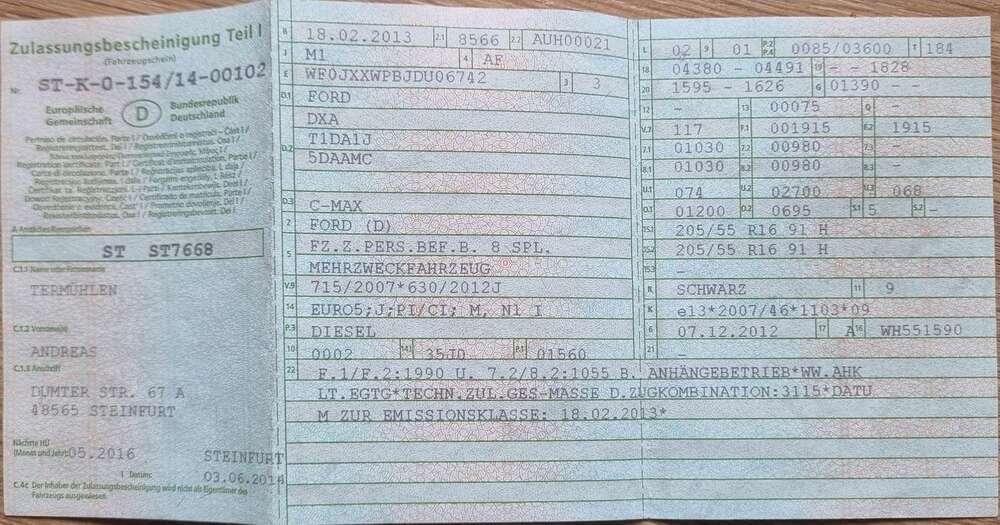 Zulassungsbescheinigung Teil I
(Fahrzeugschein)
Nr. ST-K-0-154/14-00102
Europäische Gemeinschaft D Bundesrepublik Deutschland
A Amtliches Kennzeichen
ST ST7668
C.1.1 Name oder Firmenname
TERMÜHLEN
C.1.2 Vorname(n)
ANDREAS
C.1.3 Anschrift
DUMTER STR. 67 A
48565 STEINFURT
Nächste HU
(Monat und Jahr) 05.2016 STEINFURT
Datum: 03.06.2014
C.4c Der Inhaber der Zulassungsbescheinigung wird nicht als Eigentümer des
Fahrzeugs ausgewiesen.
B 18.02.2013 2.1 8566 2.2 AUH00021
J M1 4 AF
E WF0JXXWPBJDU06742 3 3
D.1 FORD
DXA
D.2 T1DA1J
5DAAMC
D.3 C-MAX
2 FORD (D)
5 FZ.Z.PERS.BEF.B. 8 SPL.
MEHRZWECKFAHRZEUG
V.9 715/2007*630/2012J
14 EURO5;J;PI/CI; M, N1 I
P.3 DIESEL
10 0002 14.1 35JD P.1 01560
L 02 9 01 P.2 P.4 0085/03600 T 184
18 04380 - 04491 19 - - 1828
20 1595 - 1626 G 01390 - -
12 - 13 00075 Q -
V.7 117 F.1 001915 F.2 1915
7.1 01030 7.2 00980 7.3 -
8.1 01030 8.2 00980 8.3 -
U.1 074 U.2 02700 U.3 068
O.1 01200 O.2 0695 S.1 5 S.2 -
15.1 205/55 R16 91 H
15.2 205/55 R16 91 H
15.3 -
R SCHWARZ 11 9
K e13*2007/46*1103*09
6 07.12.2012 17 A 16 WH551590
21 -
22 F.1/F.2:1990 U. 7.2/8.2:1055 B. ANHÄNGEBETRIEB*WW.AHK
LT.EGTG*TECHN.ZUL.GES-MASSE D.ZUGKOMBINATION:3115*DATU
M ZUR EMISSIONSKLASSE: 18.02.2013*